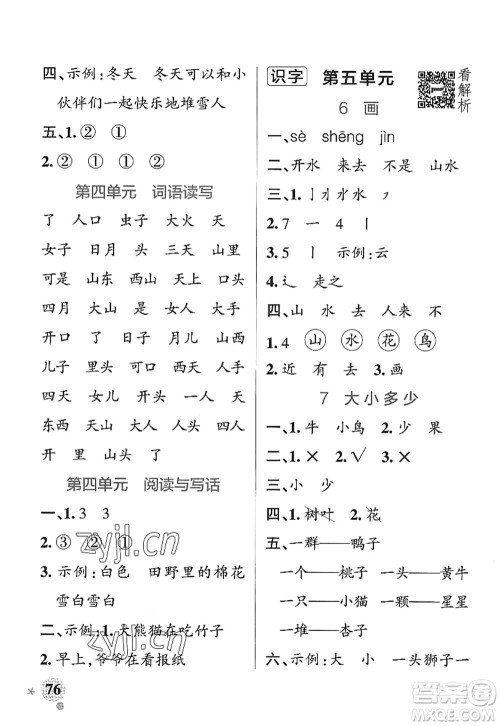 四、示例：冬天 冬天可以和小
伙伴们一起快乐地堆雪人
五、1.② ①
2.① ②
第四单元 词语读写
了 人口 虫子 大火 天
女子 日月 头 三天 山里
可是 山东 西天 山里 四头
四月 大山 是人 女人 大手
开口 了了 开口 月月 山口
儿子 里头 可是 三天 里头
四天 女儿 开天 一头 天人
东西 天山 天天 是天
第四单元 阅读与写话
一、1.3 3
2.③ ② ①
3.示例：白色 田野里的棉花
雪白雪白
二、示例：1.大熊猫在吃竹子
2.早上，爷爷在看报纸
76
识字 第五单元
看解析
6 画
一、sè shēng jìn
二、开水 来去 不是 山水
2.7 一 4 丨
3.5 丨 示例：云
4.辶 走之
四、山水 去 人来 不
1.4 山 水 花 鸟
2.近 有 去 画
7 大小多少
一、1.牛 小鸟 2.杏子 果
二、1.× 2.√ 3.×
三、小 少
四、1.树叶 2.花
五、一群——鸭子
一个——桃子 一头——黄牛
一只——小猫 一颗——星星
一堆——杏子
六、示例：大 小 一头狮子一
zyjl.cn
zyjl.cn
答案圈
MXQE.COM